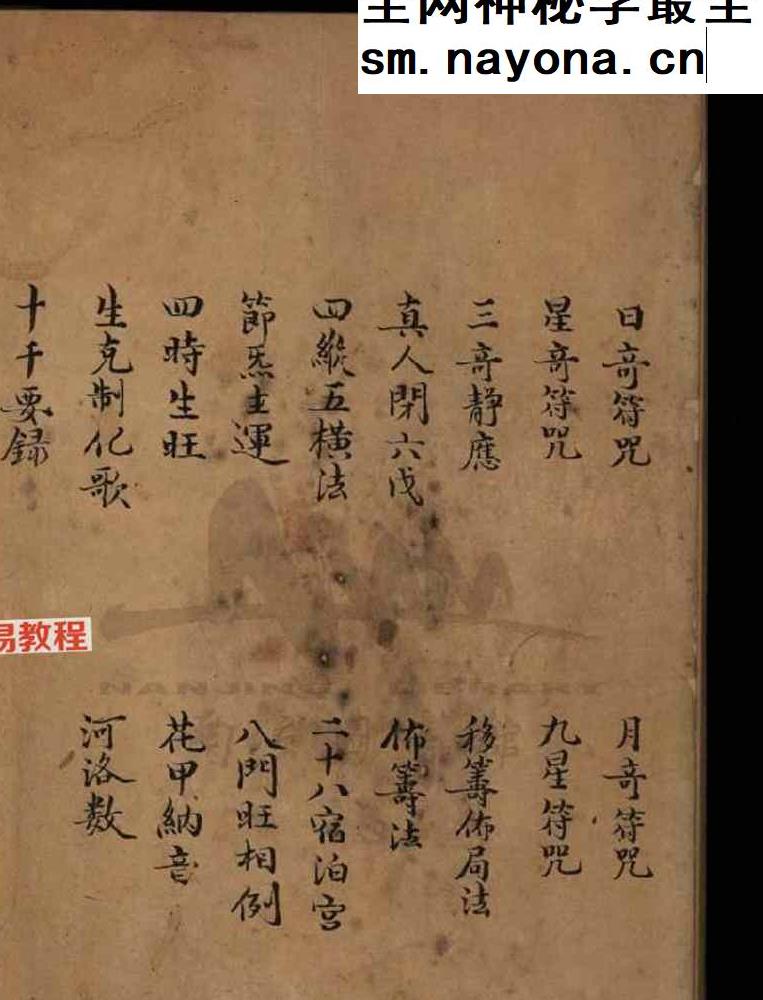 全网神秘学最全
sm.nayona.cn
日竒符咒
月竒符咒
星竒符咒
九星符咒
三竒静應
移籌佈局法
真人閉六戊
佈籌法
四縱五横法
二十八宿泊宫
節炁主運
八門旺相例
四時生旺
花甲納音
生克制化歌
河洛数
十干要録
易教程